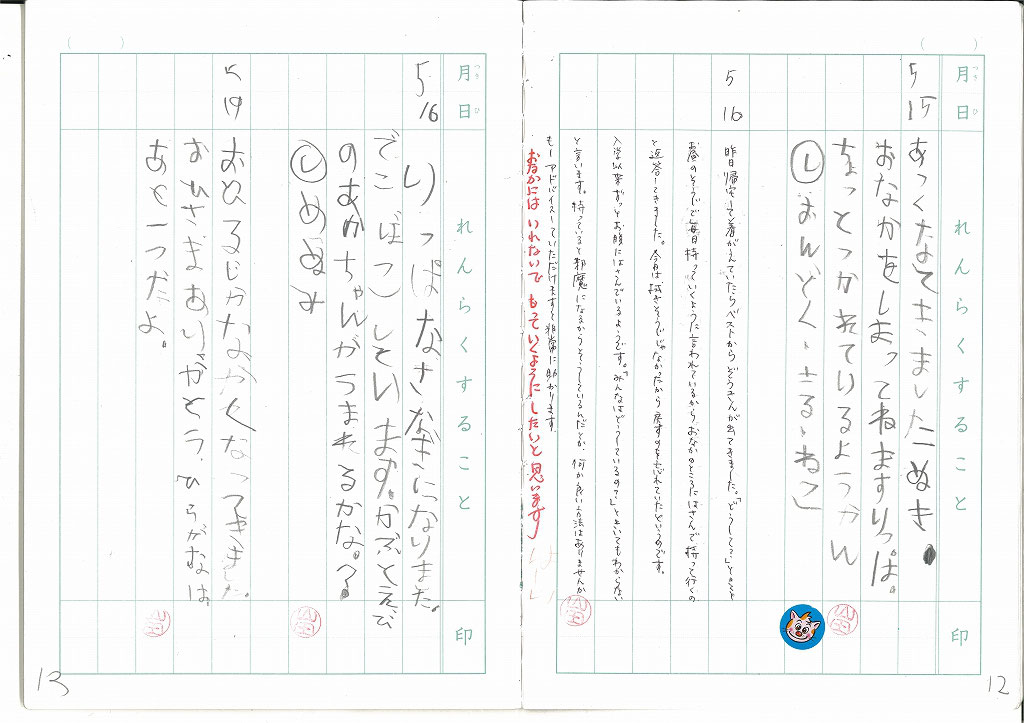 月日
れんらくすること
印
5 15
あつくなてきましたこぬき
おなかをしまってねますりっぱ。
ちょっとつかれているようかん
しおんどく、さる、ねこ
5 16
昨日帰宅して着がえていたらベストからぞうきんが出てきました。「どうして?」ときくと
お昼のそうじで毎日持っていくように言われているからおなかのところにはさんで持って行くの
と返答してきました。今日は拭きそうじじゃなかったから戻すのを忘れていたというのです。
入学以来ずっとお腹にはさんでいるようです。「みんなはどうしているの?」ときいてもわからない
と言います。持っていると邪魔になるからそうしているんだとか。何か良い方法はありませんか
もしアドバイスしていただけますと非常に助かります。
おなかには いれないで もっていくようにしたいと思います
12
月日
れんらくすること
印
5 16
りっぱなざなぎになりました。
でこぼこしています。かぶとえび
のあかちゃんがうまれるかな。?
しめぬみ
5 19
おひるじかながくなってきました。
おひさまありがとう、ひらがなは、
あと一つだよ。
13